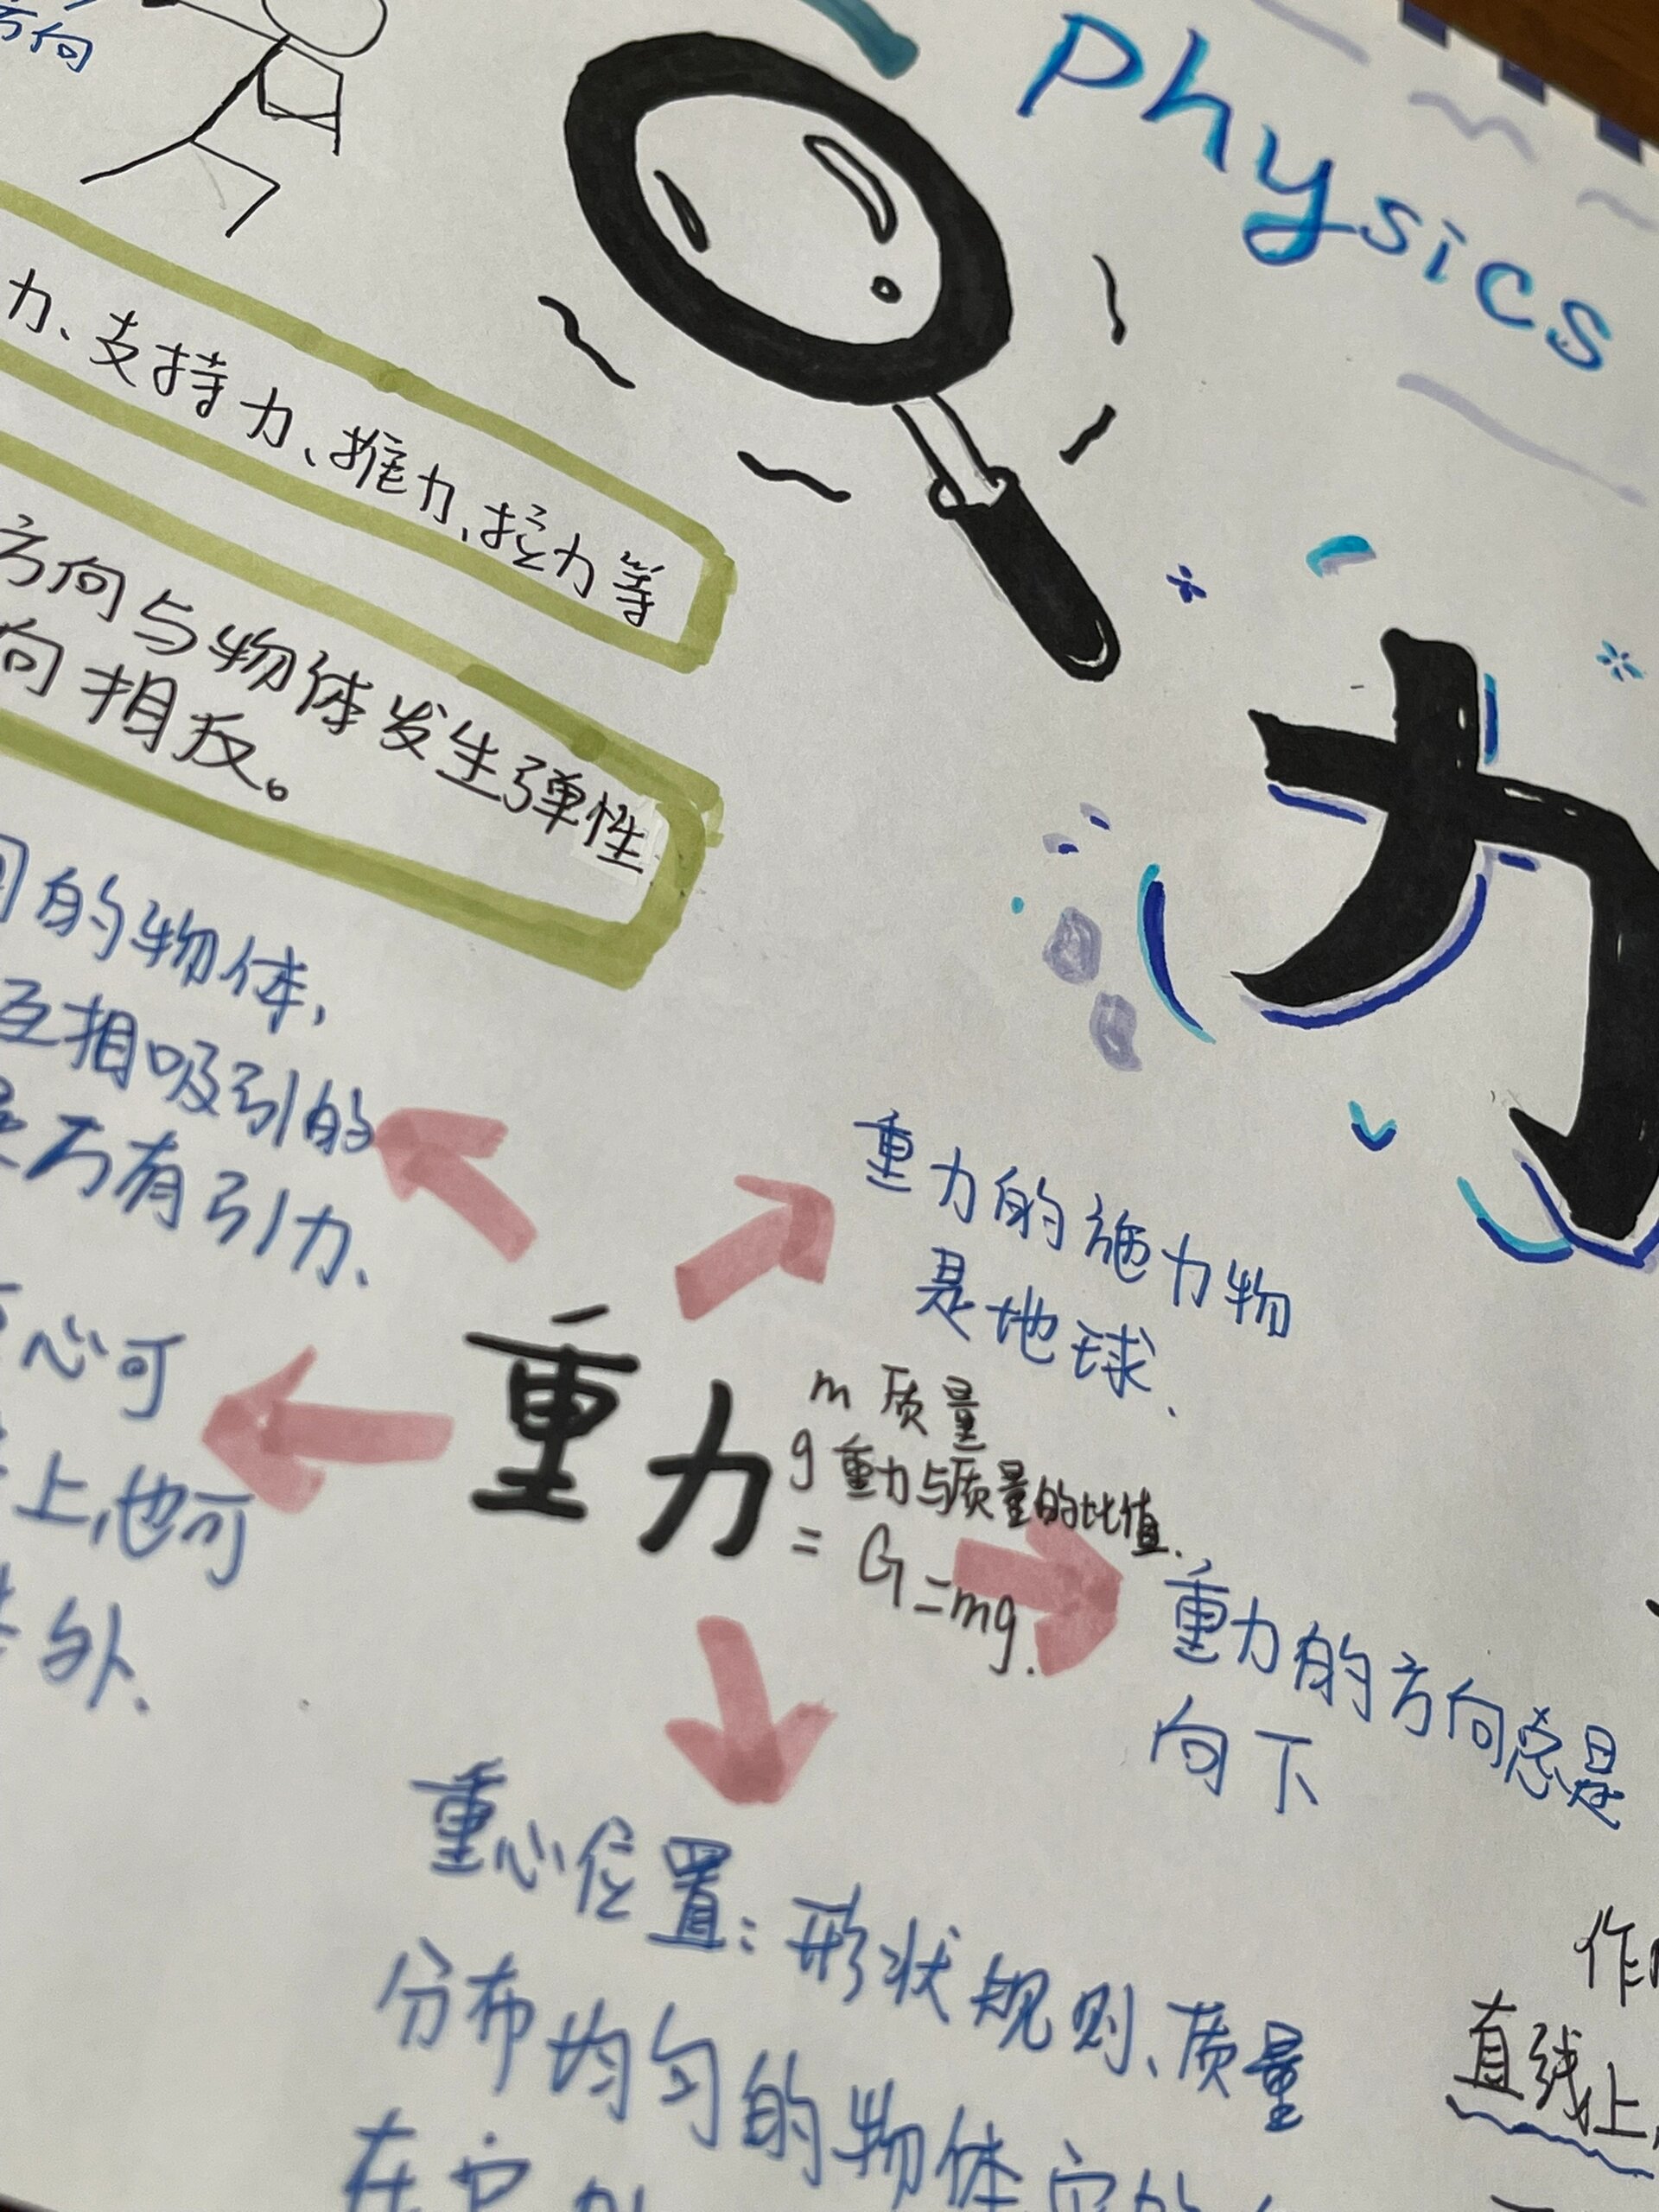 方向
Physics
力、支持力、推力、拉力等
方向与物体发生弹性
向相反。
力
的物体,
互相吸引的
万有引力.
重力的施力物
是地球.
心可
上,也可
外.
重力
m 质量
g 重力与质量的比值.
= G=mg.
重力的方向总是
向下
重心位置:形状规则、质量
分布均匀的物体,它的
在它
作
直线上,